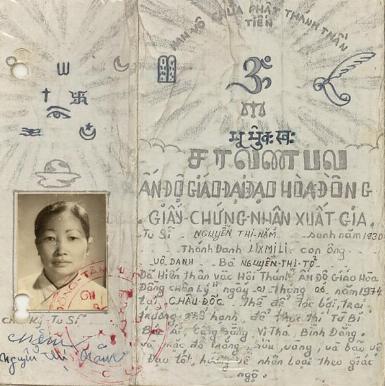 NAM MÔ CHÚA PHẬT THÁNH THẦN
TIÊN
ॐ
சரவணபவ
ẤN ĐỘ GIÁO ĐẠI ĐẠO HÒA ĐỒNG
GIẤY CHỨNG NHẬN XUẤT GIA
Tu Sĩ NGUYỄN THỊ NĂM. Sanh năm 1930
Thánh Danh LIXMILI con ông
VÔ DANH. Bà NGUYỄN THỊ TỘ
Đã Hiến thân vào Hội Thánh ẤN ĐỘ Giáo Hòa
Đồng Chân Lý ngày 01 tháng 06 năm 1974
tại CHÂU ĐỐC Thề để tóc bới, trai
trường để thực thi Từ Bi
Bác Ái, Công Bằng, Vị Tha, Bình Đẳng.
và mặc đồ vàng, và bảo vệ
Đạo tốt nhân loại theo giác
ngộ.
Chữ Ký Tu Sĩ
Nguyễn Thị Năm